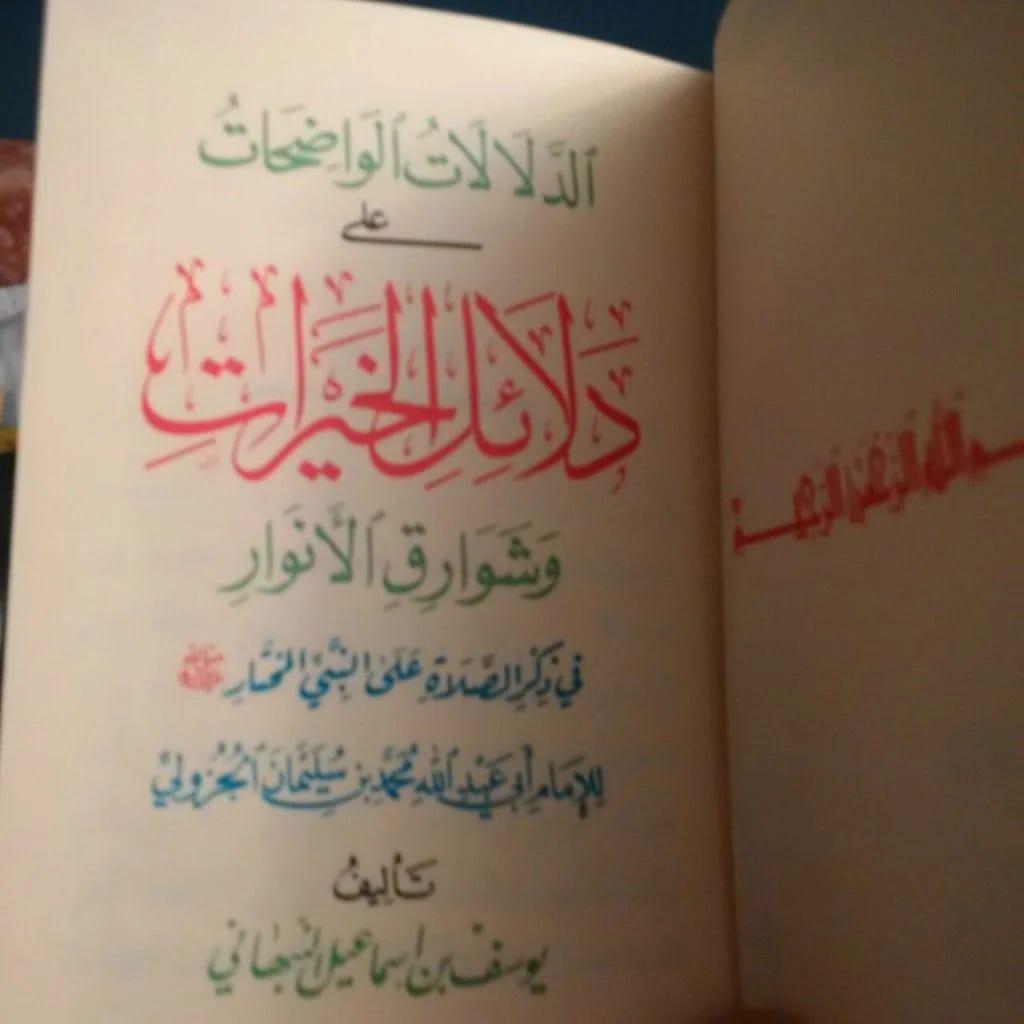 ٱلدَّلَالَاتُ ٱلْوَاضِحَاتُ
على
دَلَائِلِ الْخَيْرَاتِ
وَشَوَارِقِ ٱلْأَنْوَارِ
في ذِكْرِ الصَّلَاةِ عَلَى النَّبِيِّ المُخْتَارِ ﷺ
لِلإِمَامِ أَبِي عَبْدِ ٱللهِ مُحَمَّدِ بْنِ سُلَيْمَانَ ٱلْجُزُولِيِّ
تَأْلِيفُ
يوسف بن اسماعيل النبهاني
بسم الله الرحمن الرحيم